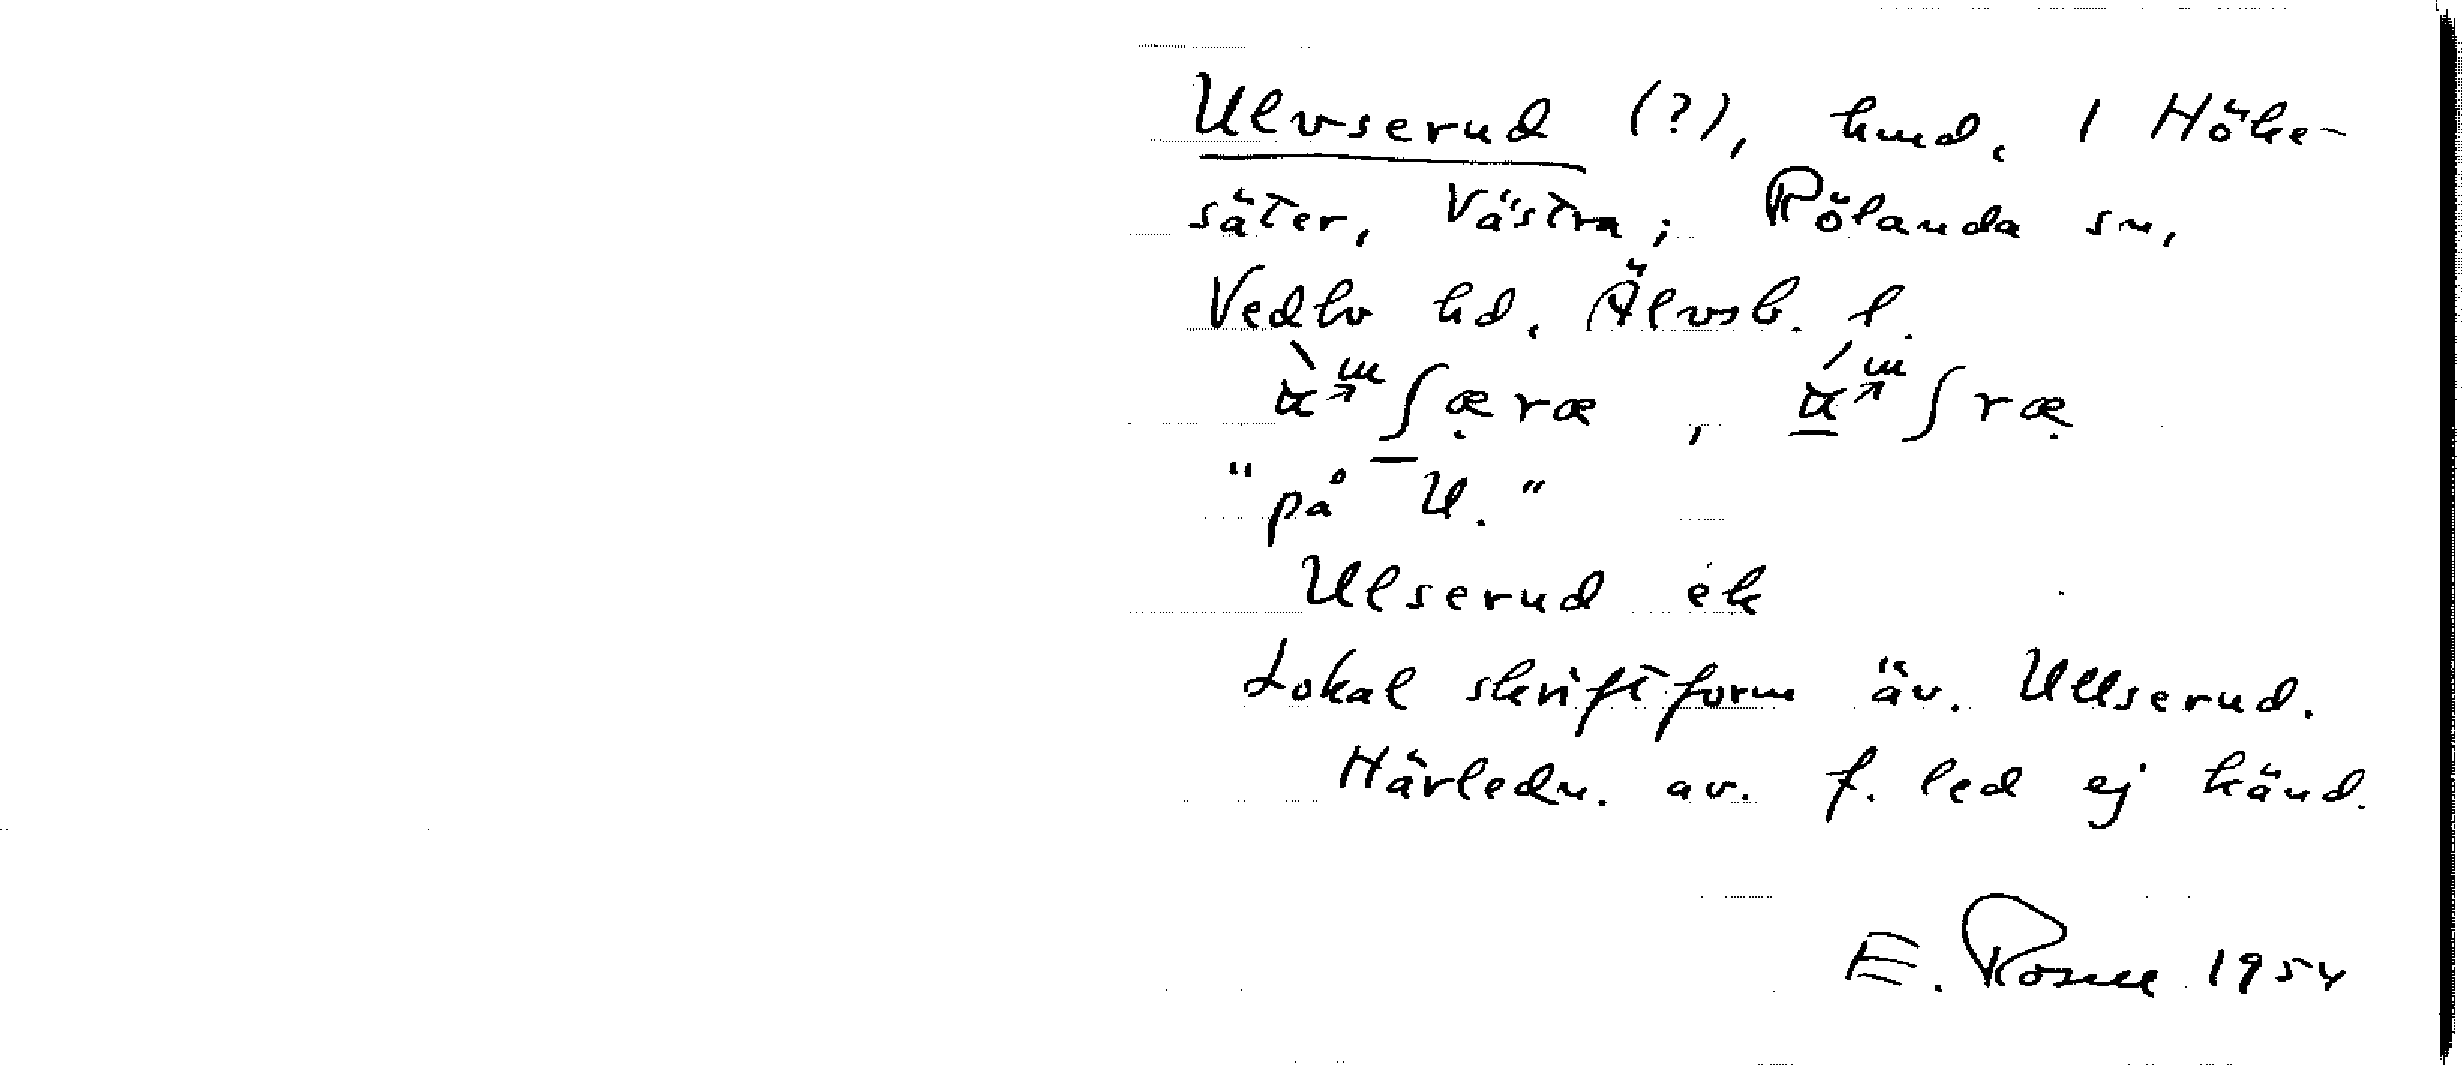 Ulvserud (?), hmd. 1 Höke-
säter, Västra; Rölanda sn,
Vedbo hd. Älvsb. l.
"på U."
Ulserud ek
Lokal skriftform äv. Ullserud.
Härledn. av f. led ej känd.
E. Rosell 1954